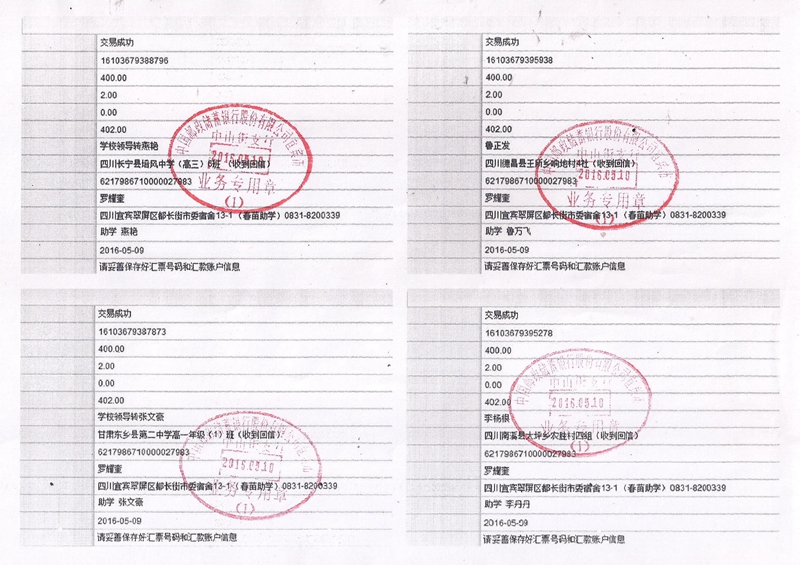 交易成功
16103679388796
400.00
2.00
0.00
402.00
学校领导转燕艳
四川长宁县培风中学（高三）6班（收到回信）
6217986710000027983
罗耀奎
四川宜宾翠屏区都长街市委宿舍13-1（春苗助学）0831-8200339
助学 燕艳
2016-05-09
请妥善保存好汇票号码和汇款账户信息
中国邮政储蓄银行股份有限公司宜宾市
中山街支行
2016.05.10
业务专用章
（1）
交易成功
16103679395938
400.00
2.00
0.00
402.00
鲁正发
四川德昌县王所乡响地村4社（收到回信）
6217986710000027983
罗耀奎
四川宜宾翠屏区都长街市委宿舍13-1（春苗助学）0831-8200339
助学 鲁万飞
2016-05-09
请妥善保存好汇票号码和汇款账户信息
中国邮政储蓄银行股份有限公司宜宾市
中山街支行
2016.05.10
业务专用章
（1）
交易成功
16103679387873
400.00
2.00
0.00
402.00
学校领导转张文豪
甘肃东乡县第二中学高一年级（1）班（收到回信）
6217986710000027983
罗耀奎
四川宜宾翠屏区都长街市委宿舍13-1（春苗助学）0831-8200339
助学 张文豪
2016-05-09
请妥善保存好汇票号码和汇款账户信息
中国邮政储蓄银行股份有限公司宜宾市
中山街支行
2016.05.10
业务专用章
（1）
交易成功
16103679395278
400.00
2.00
0.00
402.00
李杨银
四川南溪县大坪乡农胜村四组（收到回信）
6217986710000027983
罗耀奎
四川宜宾翠屏区都长街市委宿舍13-1（春苗助学）0831-8200339
助学 李丹丹
2016-05-09
请妥善保存好汇票号码和汇款账户信息
中国邮政储蓄银行股份有限公司宜宾市
中山街支行
2016.05.10
业务专用章
（1）